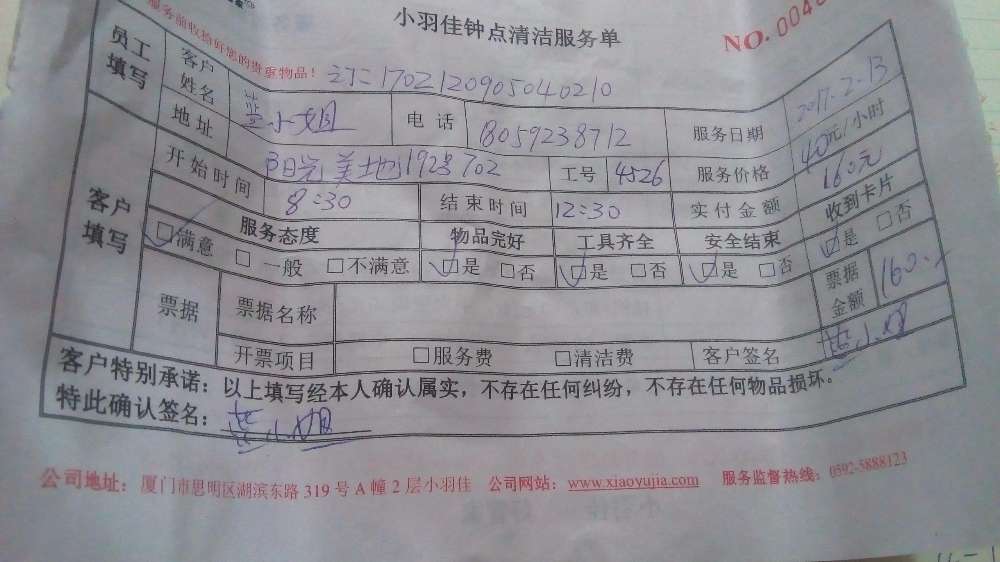 小羽佳钟点清洁服务单
NO.0040
服务前收拾好您的贵重物品!
订:1702120905040210
员工填写 客户姓名 小姐 电话 18059238712 服务日期 2017.2.13
地址 阳光美地192号702 工号 4526 服务价格 40元/小时
客户填写 开始时间 8:30 结束时间 12:30 实付金额 160元
服务态度 物品完好 工具齐全 安全结束 收到卡片
☑满意 □一般 □不满意 ☑是 □否 ☑是 □否 ☑是 □否 ☑是 □否
票据 票据名称 票据金额 160.
开票项目 □服务费 □清洁费 客户签名 小姐
客户特别承诺:以上填写经本人确认属实,不存在任何纠纷,不存在任何物品损坏。
特此确认签名: 小姐
公司地址:厦门市思明区湖滨东路 319 号 A 幢 2 层小羽佳 公司网站:www.xiaoyujia.com 服务监督热线:0592-5888123